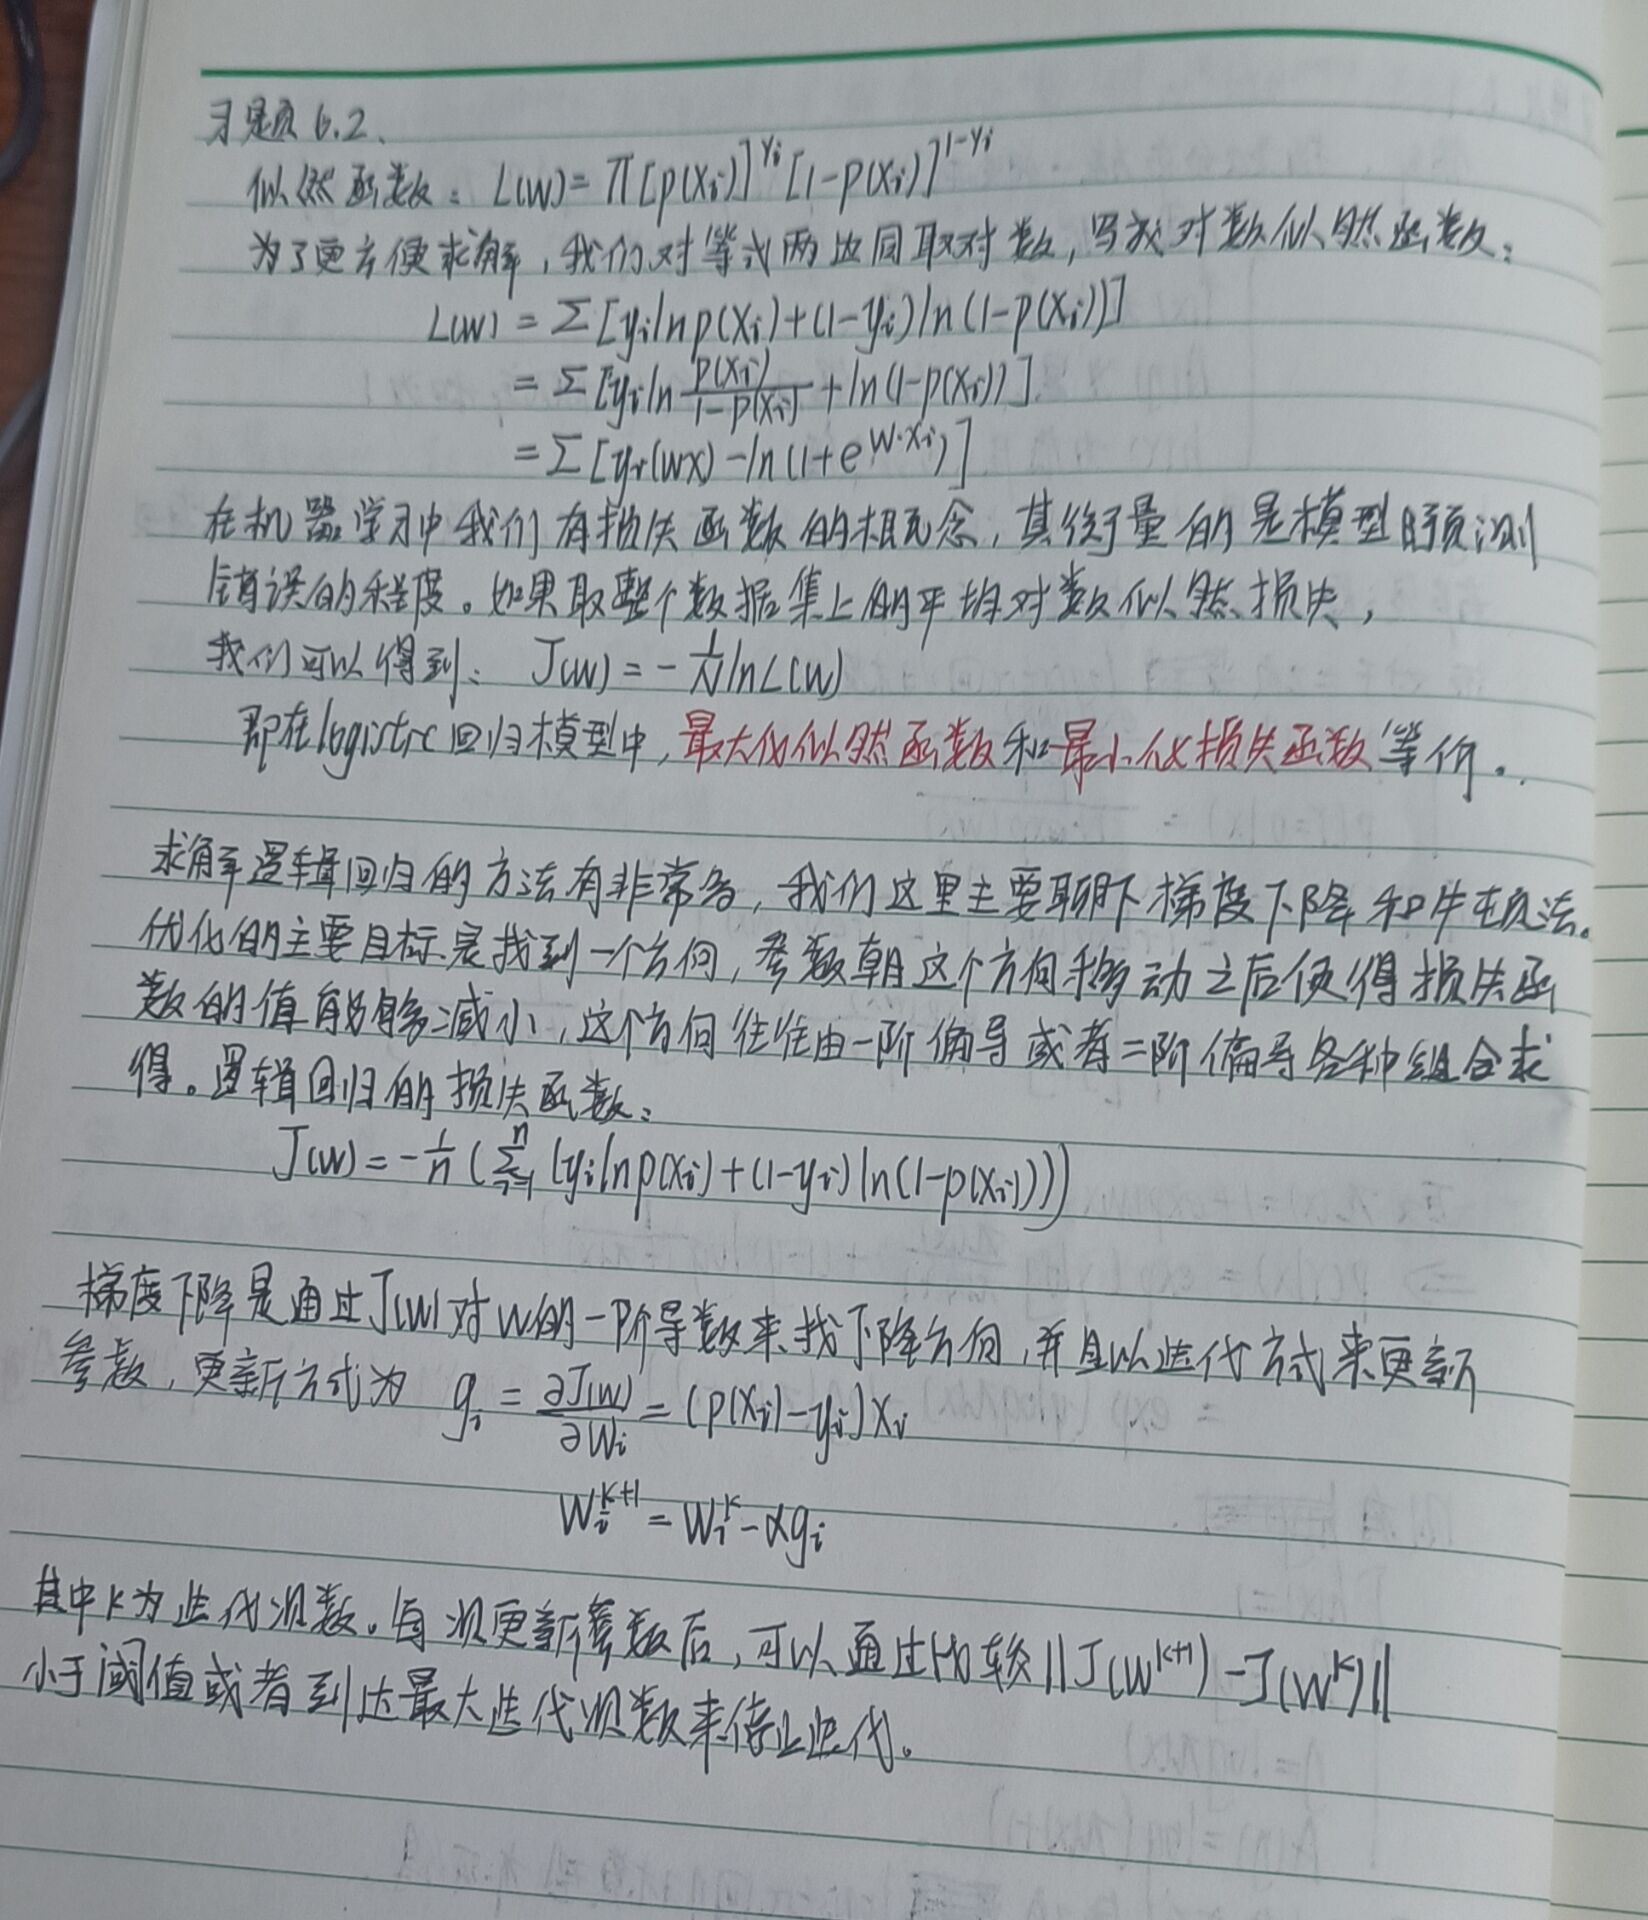 习题6.2.
似然函数：L(w)=π[p(xi)]^yi[1-p(xi)]^1-yi
为了更方便求解，我们对等式两边同取对数，写成对数似然函数：
L(w) = Σ[yi ln p(xi)+(1-yi) ln(1-p(xi))]
= Σ[yi ln p(xi)/1-p(xi) + ln(1-p(xi))]
= Σ[yi(wx) - ln(1+e^w·xi)]
在机器学习中我们有损失函数的概念，其衡量的是模型预测
错误的程度。如果取整个数据集上的平均对数似然损失，
我们可以得到：J(w) = -1/N ln L(w)
即在logistic回归模型中，最大化似然函数和最小化损失函数等价。
求解逻辑回归的方法有非常多，我们这里主要聊下梯度下降和牛顿法。
优化的主要目标是找到一个方向，参数朝这个方向移动之后使得损失函
数的值能够减小，这个方向往往由一阶偏导或者二阶偏导各种组合求
得。逻辑回归的损失函数：
J(w) = -1/n (Σ_{i=1}^n (yi ln p(xi)+(1-yi) ln(1-p(xi))))
梯度下降是通过J(w)对w的一阶导数来找下降方向，并且以迭代方式来更新
参数，更新方式为 gi = ∂J(w)/∂wi = (p(xi)-yi)xi
wi^k+1 = wi^k - αgi
其中k为迭代次数。每次更新参数后，可以通过比较||J(w^k+1)-J(w^k)||
小于阈值或者到达最大迭代次数来停止迭代。